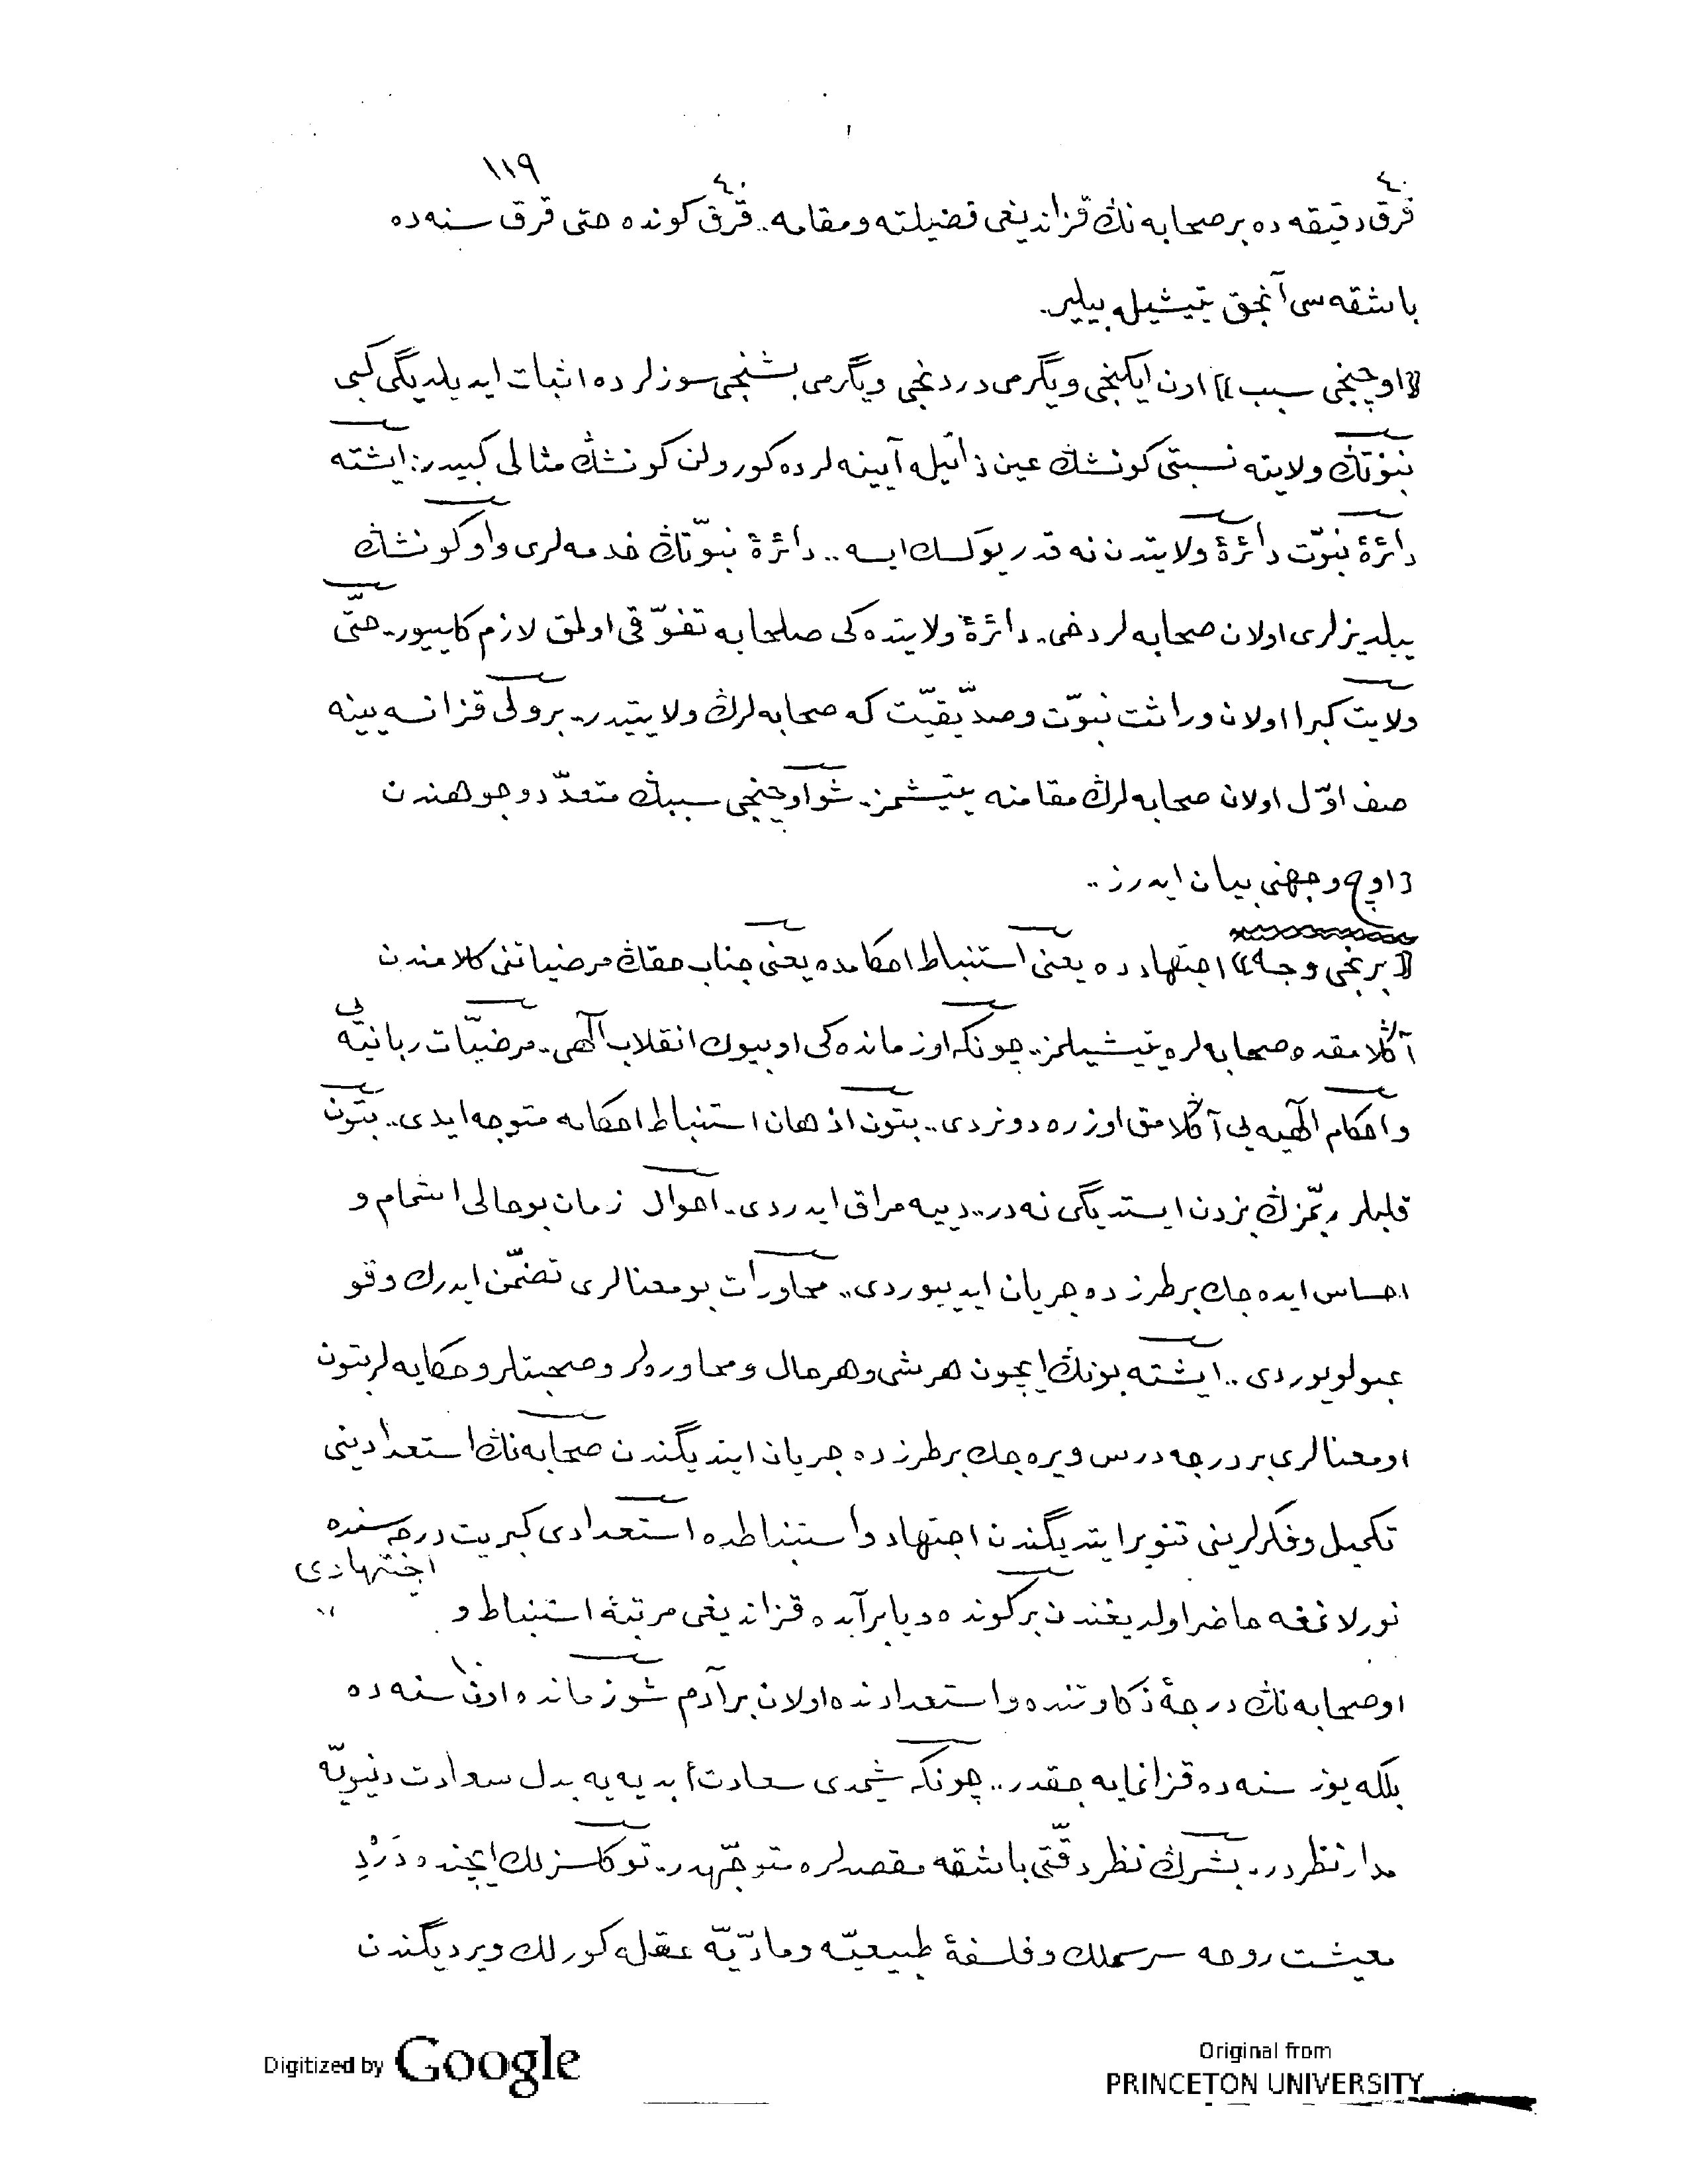 ١١٩
٤٠ ٤٠
قرق دقيقه ده بر صحابه نڭ قزاندیغی فضیلته و مقامه.. قرق كونده حتی قرق سنه ده
باشقه سی آنجق یتیشیله بیلیر.
«اوچنجی سبب» اون ایکنجی و یگرمی دردنجی و یگرمی بشنجی سوزلرده اثبات ایدیلدیگی کبی
نبوّتڭ ولایته نسبتی کونشڭ عین ذاتیله آیینه لرده کورولن کونشڭ مثالی کبیدر: ایشته
دائرهٔ نبوّت دائرهٔ ولایتدن نه قدر یوکسك ایسه.. دائرهٔ نبوّتڭ خدمه لری و او کونشڭ
ییلدیزلری اولان صحابه لر دخی.. دائرهٔ ولایتده کی صلحایه تفوّقی اولمق لازم کلیور. حتّی
ولایت کبرا اولان وراثت نبوّت و صدّیقیّت که صحابه لرڭ ولایتیدر.. بر ولی قزانسه یینه
صف اوّل اولان صحابه لرڭ مقامنه یتیشمز. شو اوچنجی سببڭ متعدّد وجوهندن
اوچ وجهنی بیان ایدرز..
«برنجی وجه» اجتهادده یعنی استنباط احکامده یعنی جناب حقڭ مرضیاتنی کلامندن
آڭلامقده صحابه لره یتیشیلمز.. چونکه او زمانده کی او بیوك انقلاب الٓهی.. مرضیّات ربانیّه یی
و احکام الٓهیه یی آڭلامق اوزره دونردی.. بتون اذهان استنباط احکامه متوجه ایدی.. بتون
قلبلر ربّمزڭ بزدن ایستدیگی نه در.. دییه مراق ایدردی. احوال زمان بو حالی اشمام و
احساس ایده جك بر طرزده جریان ایدییوردی.. محاورات بو معنالری تضمّن ایدرك وقو
عبولویوردی.. ایشته بونڭ ایچون هر شی و هر حال و محاوره لر و صحبتلر و حکایه لر بتون
او معنالری بر درجه درس ویره جك بر طرزده جریان ایتدیگندن صحابه نڭ استعدادینی
تکمیل و فکرلرینی تنویر ایتدیگندن اجتهاد و استنباطده استعدادی کبریت درجه سنده
نورلانمغه حاضر اولدیغندن بر کونده ویا بر آیده قزاندیغی مرتبهٔ استنباط و اجتهادی
او صحابه نڭ درجهٔ ذکاوتنده و استعدادنده اولان بر آدم شو زمانده اون ١٠ سنه ده
بلکه یوز سنه ده قزانمایه جقدر.. چونکه شیمدی سعادت ابدیه یه بدل سعادت دنیویّه
مدار نظردر.. بشرڭ نظر دقّتی باشقه مقصدلره متوجّهدر.. توکلسزلك ایچنده دَرْدِ
معیشت روحه سرسملك و فلسفهٔ طبیعیّه و مادّیّه عقله کورلك ویردیگندن
Digitized by Google
Original from
PRINCETON UNIVERSITY